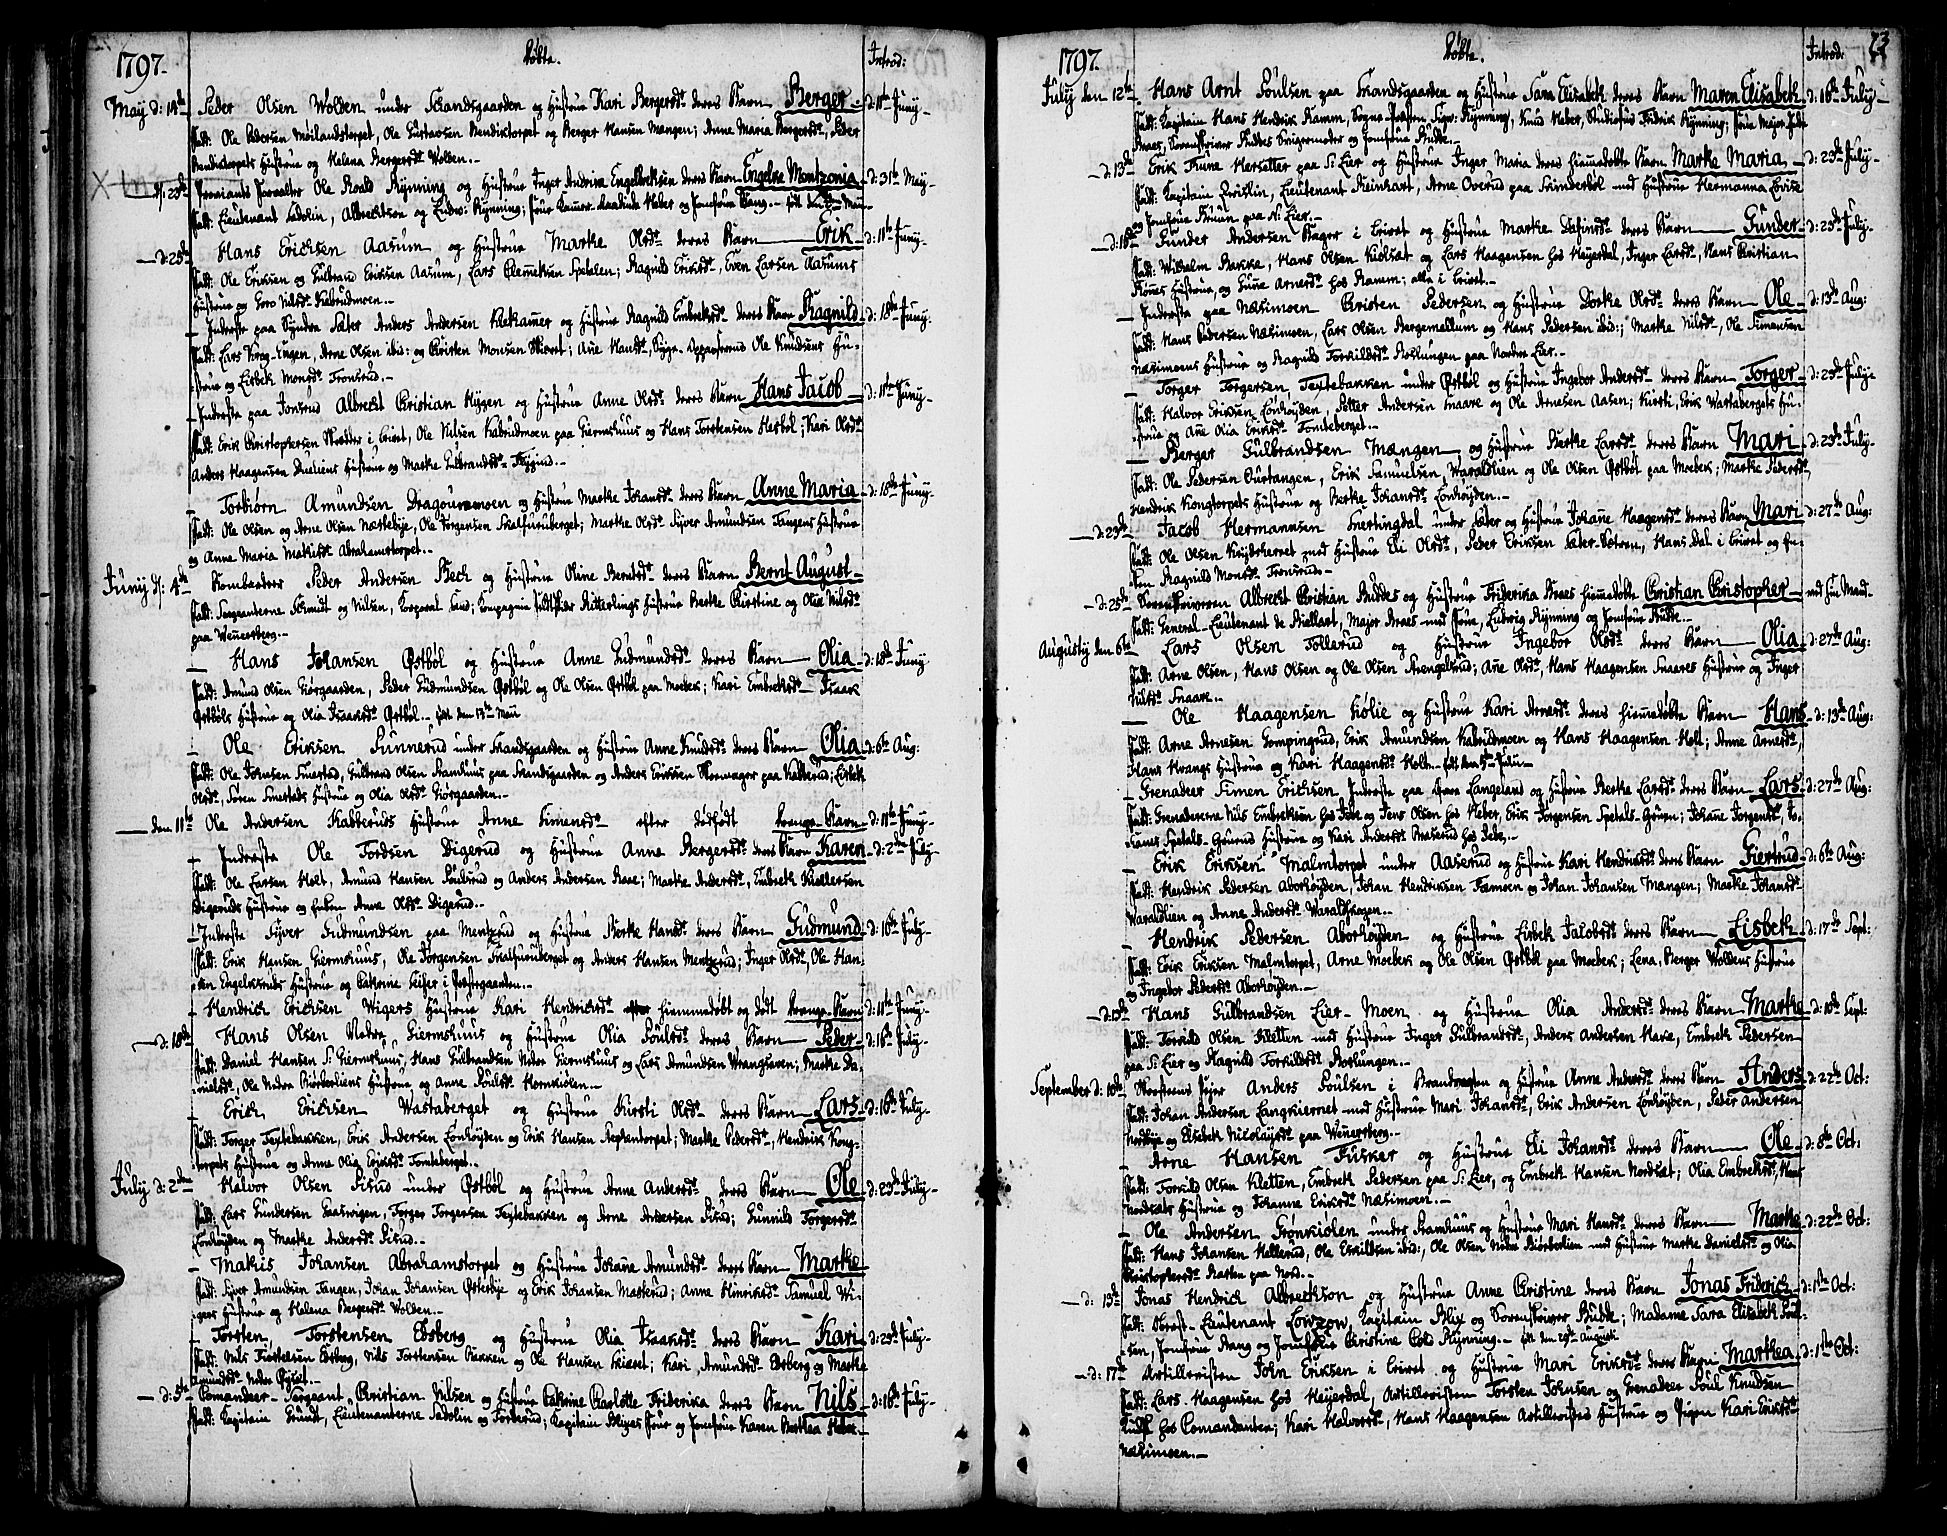 1797. Døbte. Introd:
May d: 14de Peder Olsen Wolden under Schandsgaarden og Hustrue Kari Bergersdr deres Barn Berger d: 11te Juny
Fadd: Ole Pedersen Møilandstorpet, Ole Gustavsen Bendiktorpet og Berger Hansen Mangen; Anne Maria Bergersdr, Peder
Bendiktorpets Hustrue og Helena Bergersdr Wolden.
d: 23de Proviants Forvalter Ole Roald Rynning og Hustrue Inger Andrina Engelbreksen deres Barn Engelke Montzonia d: 31te May
Fadd: Lieutenant Sadolin, Albrechtson og Ludv: Rynning;
d: 25de Hans Ericksen Aasum og Hustrue Marte Olsdr deres Barn Erik d: 11te Juny
Fadd: Ole Eriksen og Gulbrand Eriksen Aasum, Lars Clemetsen Spetalen; Ragnild Eriksdr, Even Larsen Aasums
Hustrue og Goro Nilsdr Kabrudmoen.
Inderste paa Søndre Sæter Anders Andersen og Hustrue Ragnild Embreksdr deres Barn Ragnild d: 18de Juny
Fadd: Lars Krog-Engen, Arne Olsen ibid: og Christen Monsen; Ole Knudsens Hu-
strue og Lisbek Monsdr Tronsrud.
Inderste paa Jonsrud Albrecht Christian Hygen og Hustrue Anne Olsdr deres Barn Hans Jacob d: 11te Juny
Fadd: Erik Christophersen Skredder i Leiret, Ole Nilsen Kabrudmoen paa Giermshuus og Hans Torstensen Hesbøl; Kari Olsdr
Anders Haagensen Hustrue og Marte Gulbrandsdr
Torbiørn Amundsen Dragonmoen og Hustrue Marte Johansdr deres Barn Anne Maria d: 18de Juny
Fadd: Ole Olsen og Arne Olsen Næstebye, Ole Jørgensen Skalfuruberget; Marte Olsdr, Syver Amundsen Tangens Hustrue
og Anne Maria Makisdr Abrahamstorpet.
Juny d: 4de Bombardeer Peder Andersen Beck og Hustrue Oline Berntsdr deres Barn Bernt August
Fadd: Sergeanterne Schmidt og Nilsen, Corporal Lund; Compagnie Ritterlings Hustrue Berthe Christine og Olia Nilsdr
paa Wennersberg.
Hans Johansen Østbøl og Hustrue Anne Gudmundsdr deres Barn Olia d: 18de Juny
Fadd: Amund Olsen Kiørgaarden, Peder Gudmundsen Østbøl og Ole Olsen Østbøl paa Moebek; Kari Embreksdr Isaak
Østbøls Hustrue og Olia Isaaksdr Østbøl. født den 13de Maii
Ole Eriksen Sunnerud under Skandsgaarden og Hustrue Anne Knudsdr deres Barn Olia d: 6te Aug:
Fadd: Ole Johnsen Smestad, Gulbrand Olsen Skamhuus paa Skandsgaarden og Anders Eriksen Skomager paa Katterud; Lisbek
Olsdr, Søren Smestads Hustrue og Olia Olsdr Kiørgaarden.
den 11te Ole Andersen Katteruds Hustrue Anne Simensdr efter dødfødt Drenge-Barn d: 11te Juny
Inderste Ole Tordsen Digerud og Hustrue Anne Bergersdr deres Barn Karen d: 2den July
Fadd: Ole Larsen Holt, Amund Hansen Poulsrud og Anders Andersen Aase; Marte Andersdr, Embrek Kiellersen
Digeruds Hustrue og Enken Anne Olsdr Digerud.
Inderste Syver Gudmundsen paa Mentzrud og Hustrue Berthe Hansdr deres Barn Gudmund d: 16de July
Fadd: Erik Hansen Giermshuus, Ole Jørgensen Skalfuruberget og Anders Hansen Mentzrud; Inger Olsdr, Ole Han-
sen Engelkruds Hustrue og Cathrine Leister i Præstegaarden.
Hendrick Ericksen Wigers Hustrue Kari Hendriksdr hiemmedøbt og død Drenge-Barn d: 11te Juny
d: 18de Hans Olsen Nedre Giermshuus og Hustrue Olia Poulsdr deres Barn Peder d: 16de July
Fadd: Daniel Hansen S: Giermshuus, Hans Gulbrandsen Nedre Giermshuus og Lars Amundsen Wrangsaven; Marte Da-
nielsdr, Ole Nedre Biørberliens Hustrue og Anne Poulsdr Hornkiølen.
Erick Ericksen Wastaberget og Hustrue Kirsti Olsdr deres Barn Lars d: 16de July
Fadd: Torger Textebakken, Erik Andersen Lonhøyden og Erik Hansen Neptentorpet; Marte Pedersdr, Hendrik Kong-
torpets Hustrue og Anne Olia Eriksdr Tomteberget.
July d: 2den Halvor Olsen Sisud under Østbøl og Hustrue Anne Andersdr deres Barn Ole d: 23de July
Fadd: Lars Gundersen Gaaswigen, Torger Torgersen Textebakken og Arne Andersen Sisud; Gunnild Torgersdr
Lonhøyden og Marte Andersdr Sisud.
Makis Johansen Abrahamstorpet og Hustrue Johane Amundsdr deres Barn Marthe
Fadd: Syver Amundsen Tangen, Johan Johansen Østerbye og Erik Johansen Masterud; Anne Hinriksdr Samuel Wi-
gers Hustrue og Helena Bergersdr Wolden.
Torsten Torstensen Ebsberg og Hustrue Olia Isaaksdr deres Barn Kari d: 23de July
Fadd: Nils Ebsberg, Nils Torstensen Bakken og Ole Hansen Leiret; Kari Amundsdr Ebsberg og Marte
Amundsdr Nedre Øyset.
d: 5te Comandeer-Sergeant Christian Nilsen og Hustrue Cathrine Charlotte Friderika deres Barn Nils d: 16de July
Fadd: Capitain Grundt, Lieutenanterne Sadolin og Torkrud; Capitain Blixes Frue og Jomfrue Karen Berthea Heber

1797. Døbte. Introd: 73
July den 12te Hans Arnt Poulsen paa Skandsgaarden og Hustrue Sara Elisabek deres Barn Maren Elisabek d: 16de July
Fadd: Capitain Hans Hendrik Ramm, Sogne-Præsten Rynning, Knud Heber, Studiosus Fridrik Rynning; Frue Major
Sorenskriver Buddes Svigermoder og Jomfrue Budde.
d: 13de Erik Tune Hersetter paa S: Lier og Hustrue Inger Maria deres hiemmedøbte Barn Marthe Maria d: 23de July
Fadd: Capitain Lieutenant Reinhart, Arne Overud paa Skinderbøl med Hustrue Hermanna Lovise
og Jomfrue Bruun paa N: Lier.
d: 16de Gunder Andersen Bager i Leiret og Hustrue Marthe Dasinsdr deres Barn Gunder d: 23de July
Fadd: Wilhelm Bakke, Hans Olsen Kiølsæt og Lars Haagensen hos Heyerdal, Inger Larsdr, Hans Christian
Hustrue, og Gune Arnesdr hos Ramm; alle i Leiret.
Inderste paa Næsimoen Christen Pedersen og Hustrue Dorthe Olsdr deres Barn Ole d: 13de Aug:
Fadd: Hans Pedersen Næsimoen, Lars Olsen Bergemellum og Hans Pedersen ibid:; Marthe Nilsdr, Ole Simensen
Næsimoens Hustrue og Ragnild Torkildsdr Roslungen paa Nordre Lier.
Torger Torgersen Textebakken under Østbøl og Hustrue Ingebor Andersdr deres Barn Torger d: 23de July
Fadd: Halvor Eriksen Lonhøyden, Petter Andersen Snaare og Ole Arnesen Aasen; Kirsti, Erik Wastabergets Hu-
strue og Ane Olia Eriksdr Tomteberget.
Berger Gulbrandsen Mangen og Hustrue Berthe Larsdr deres Barn Mari d: 23de July
Fadd: Ole Pedersen Buttangen, Erik Samuelsen Waraldlien og Ole Olsen Østbøl paa Moebek; Marthe Pedersdr,
Hendrik Kongtorpets Hustrue og Berthe Johansdr Lonhøyden.
d: 23de Jacob Hermannsen Snertingdal under Sæter og Hustrue Johane Haagensdr deres Barn Mari d: 27de Aug:
Fadd: Ole Olsen med Hustrue Eli Olsdr, Peder Eriksen Sæter, Hans Dal i Leiret og En-
ken Ragnild Monsdr Tronsrud.
d: 25de Sorenskriveren Albrecht Christian Buddes og Hustrue Friderika Braes hiemmedøbte Christian Christopher
Fadd: General-Lieutenant de Biellart, Major Braes med Frue, Ludvig Rynning og Jomfrue Budde.
Augusty den 6te Lars Olsen Tollerud og Hustrue Ingebor Olsdr deres Barn Olia d: 27de Aug:
Fadd: Arne Olsen, Hans Olsen og Ole Olsen Strengelsrud; Ane Olsdr, Hans Haagensen Snaares Hustrue og Inger
Nilsdr Snaare.
Ole Haagensen Kølie og Hustrue Kari Arnesdr deres hiemmedøbte Barn Hans d: 13de Aug:
Fadd: Arne Arnesen Gompingrud, Erik Amundsen Kabrudmoen og Hans Haagensen Holt; Anne Arnesdr,
Hans Hvangs Hustrue og Kari Haagensdr Holt. født den 5te Julii
Grenadeer Simen Ericksen Inderste paa Øvre Langeland og Hustrue Berthe Larsdr deres Barn Lars d: 27de Aug:
Fadd: Grenadeererne Nils Embreksen hos Juhl og Jens Olsen hos Heber, Erik Jørgensen Spetals-Gouen; Johane Jørgensdr, Jo-
hanes Spetals-Gouens Hustrue og Kari Andersdr Braterud hos
Erik Eriksen Malmtorpet under Aaserud og Hustrue Kari Hendriksdr deres Barn Giertrud d: 6te Aug:
Fadd: Hendrik Pedersen Aborhøyden, Johan Hendriksen Tæmoen og Johan Johansen Mangen; Marthe Johansdr
Waraldlien og Anne Andersdr Waraldskogen.
Hendrik Pedersen Aborhøyden og Hustrue Lisbek Jacobsdr deres Barn Lisbek d: 17de Sept:
Fadd: Erik Eriksen Malmtorpet, Arne Moebek og Ole Olsen Østbøl paa Moebek; Lena, Berger Woldens Hustrue
og Ingebor Pedersdr Aborhøyden.
d: 13de Hans Gulbrandsen Lier-Moen og Hustrue Olia Andersdr deres Barn Marthe d: 10de Sept:
Fadd: Torkild Olsen Kletten med Hustrue Inger Gulbrandsdr, Anders Andersen Hare, Embrek Pedersen
paa S: Lier og Ragnild Torkildsdr Roslungen.
September d: 10de Anders Poulsen i Brandvagten og Hustrue Anne Andersdr deres Barn Anders d: 22de Oct:
Fadd: Johan Andersen Langkiernet med Hustrue Mari Johansdr, Erik Andersen Lonhøyden, Peder Andersen
Nordbye og Elsebek Nicolaysdr paa Wennersberg.
Arne Hansen Fusker og Hustrue Eli Johansdr deres Barn Ole d: 8de Oct:
Fadd: Torkild Olsen Kletten, Embrek Pedersen paa S: Lier, og Embrek Hansen Nordset; Olia Embreksdr, Hans
Nordsets Hustrue og Johanne Eriksdr Næsimoen.
Ole Andersen Grønkiølen under Skamhuus og Hustrue Mari Hansdr deres Barn Marthe d: 22de Oct:
Fadd: Hans Johansen Hellerud, Ole Eskildsen ibid:, Ole Olsen Nedre Biørberlien med Hustrue Marthe Danielsdr og Olia
Christophersdr Rasten paa Nord.
d: 15de Jonas Hendrich Albrechtson og Hustrue Anne Christine deres Barn Jonas Friderich d: 1ste Oct:
Fadd: Obrist-Lieutenant Lowzow, Capitain Blix og Sorenskriver Budde; Madame Sara Elisabek Poul-
sen, Jomfrue Stang og Jomfrue Christine Rynning. født den 29de Augusti
d: 17de Artilleristen John Eriksen i Leiret og Hustrue Mari Eriksdr deres Barn Marthea d: 1ste Oct:
Fadd: Lars Haagensen hos Heyerdal, Artilleristen Torsten Johnsen og Grenadeer Poul Knudsen
hos Comandanten; Kari Halvorsdr, Hans Haagensen Artilleristes Hustrue og Pigen Kari Eriksdr
Næsimoen.